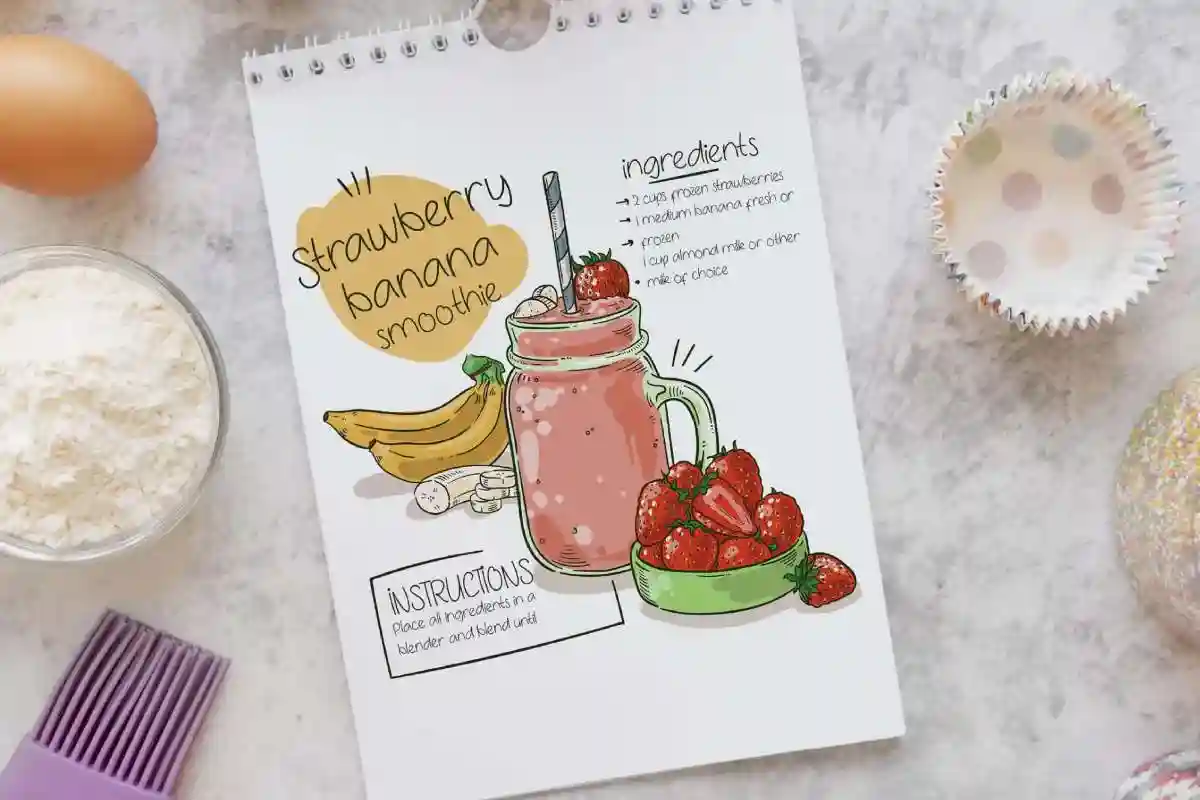 Strawberry
banana
smoothie
ingredients
→ 2 cups frozen strawberries
→ 1 medium banana fresh or
→ frozen
1 cup almond milk or other
• milk of choice
INSTRUCTIONS
Place all ingredients in a
blender and blend until